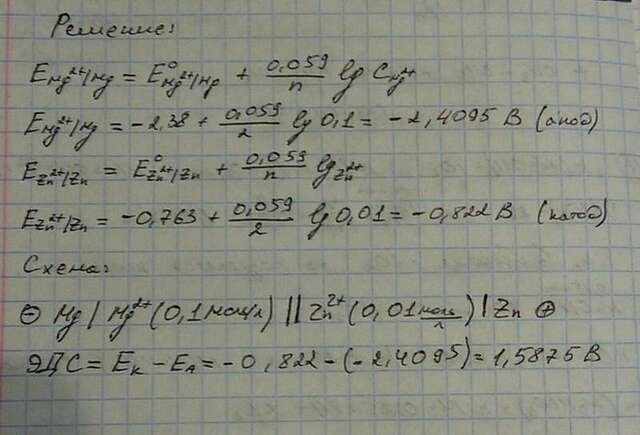 Решение:
E Mg²⁺/Mg = E⁰ Mg²⁺/Mg + 0,059/n lg C Mg²⁺
E Mg²⁺/Mg = -2,38 + 0,059/2 lg 0,1 = -2,4095 В (анод)
E Zn²⁺/Zn = E⁰ Zn²⁺/Zn + 0,059/n lg Zn²⁺
E Zn²⁺/Zn = -0,763 + 0,059/2 lg 0,01 = -0,822 В (катод)
Схема:
⊖ Mg | Mg²⁺ (0,1 моль/л) || Zn²⁺ (0,01 моль/л) | Zn ⊕
ЭДС = Eк - Eа = -0,822 - (-2,4095) = 1,5875 В